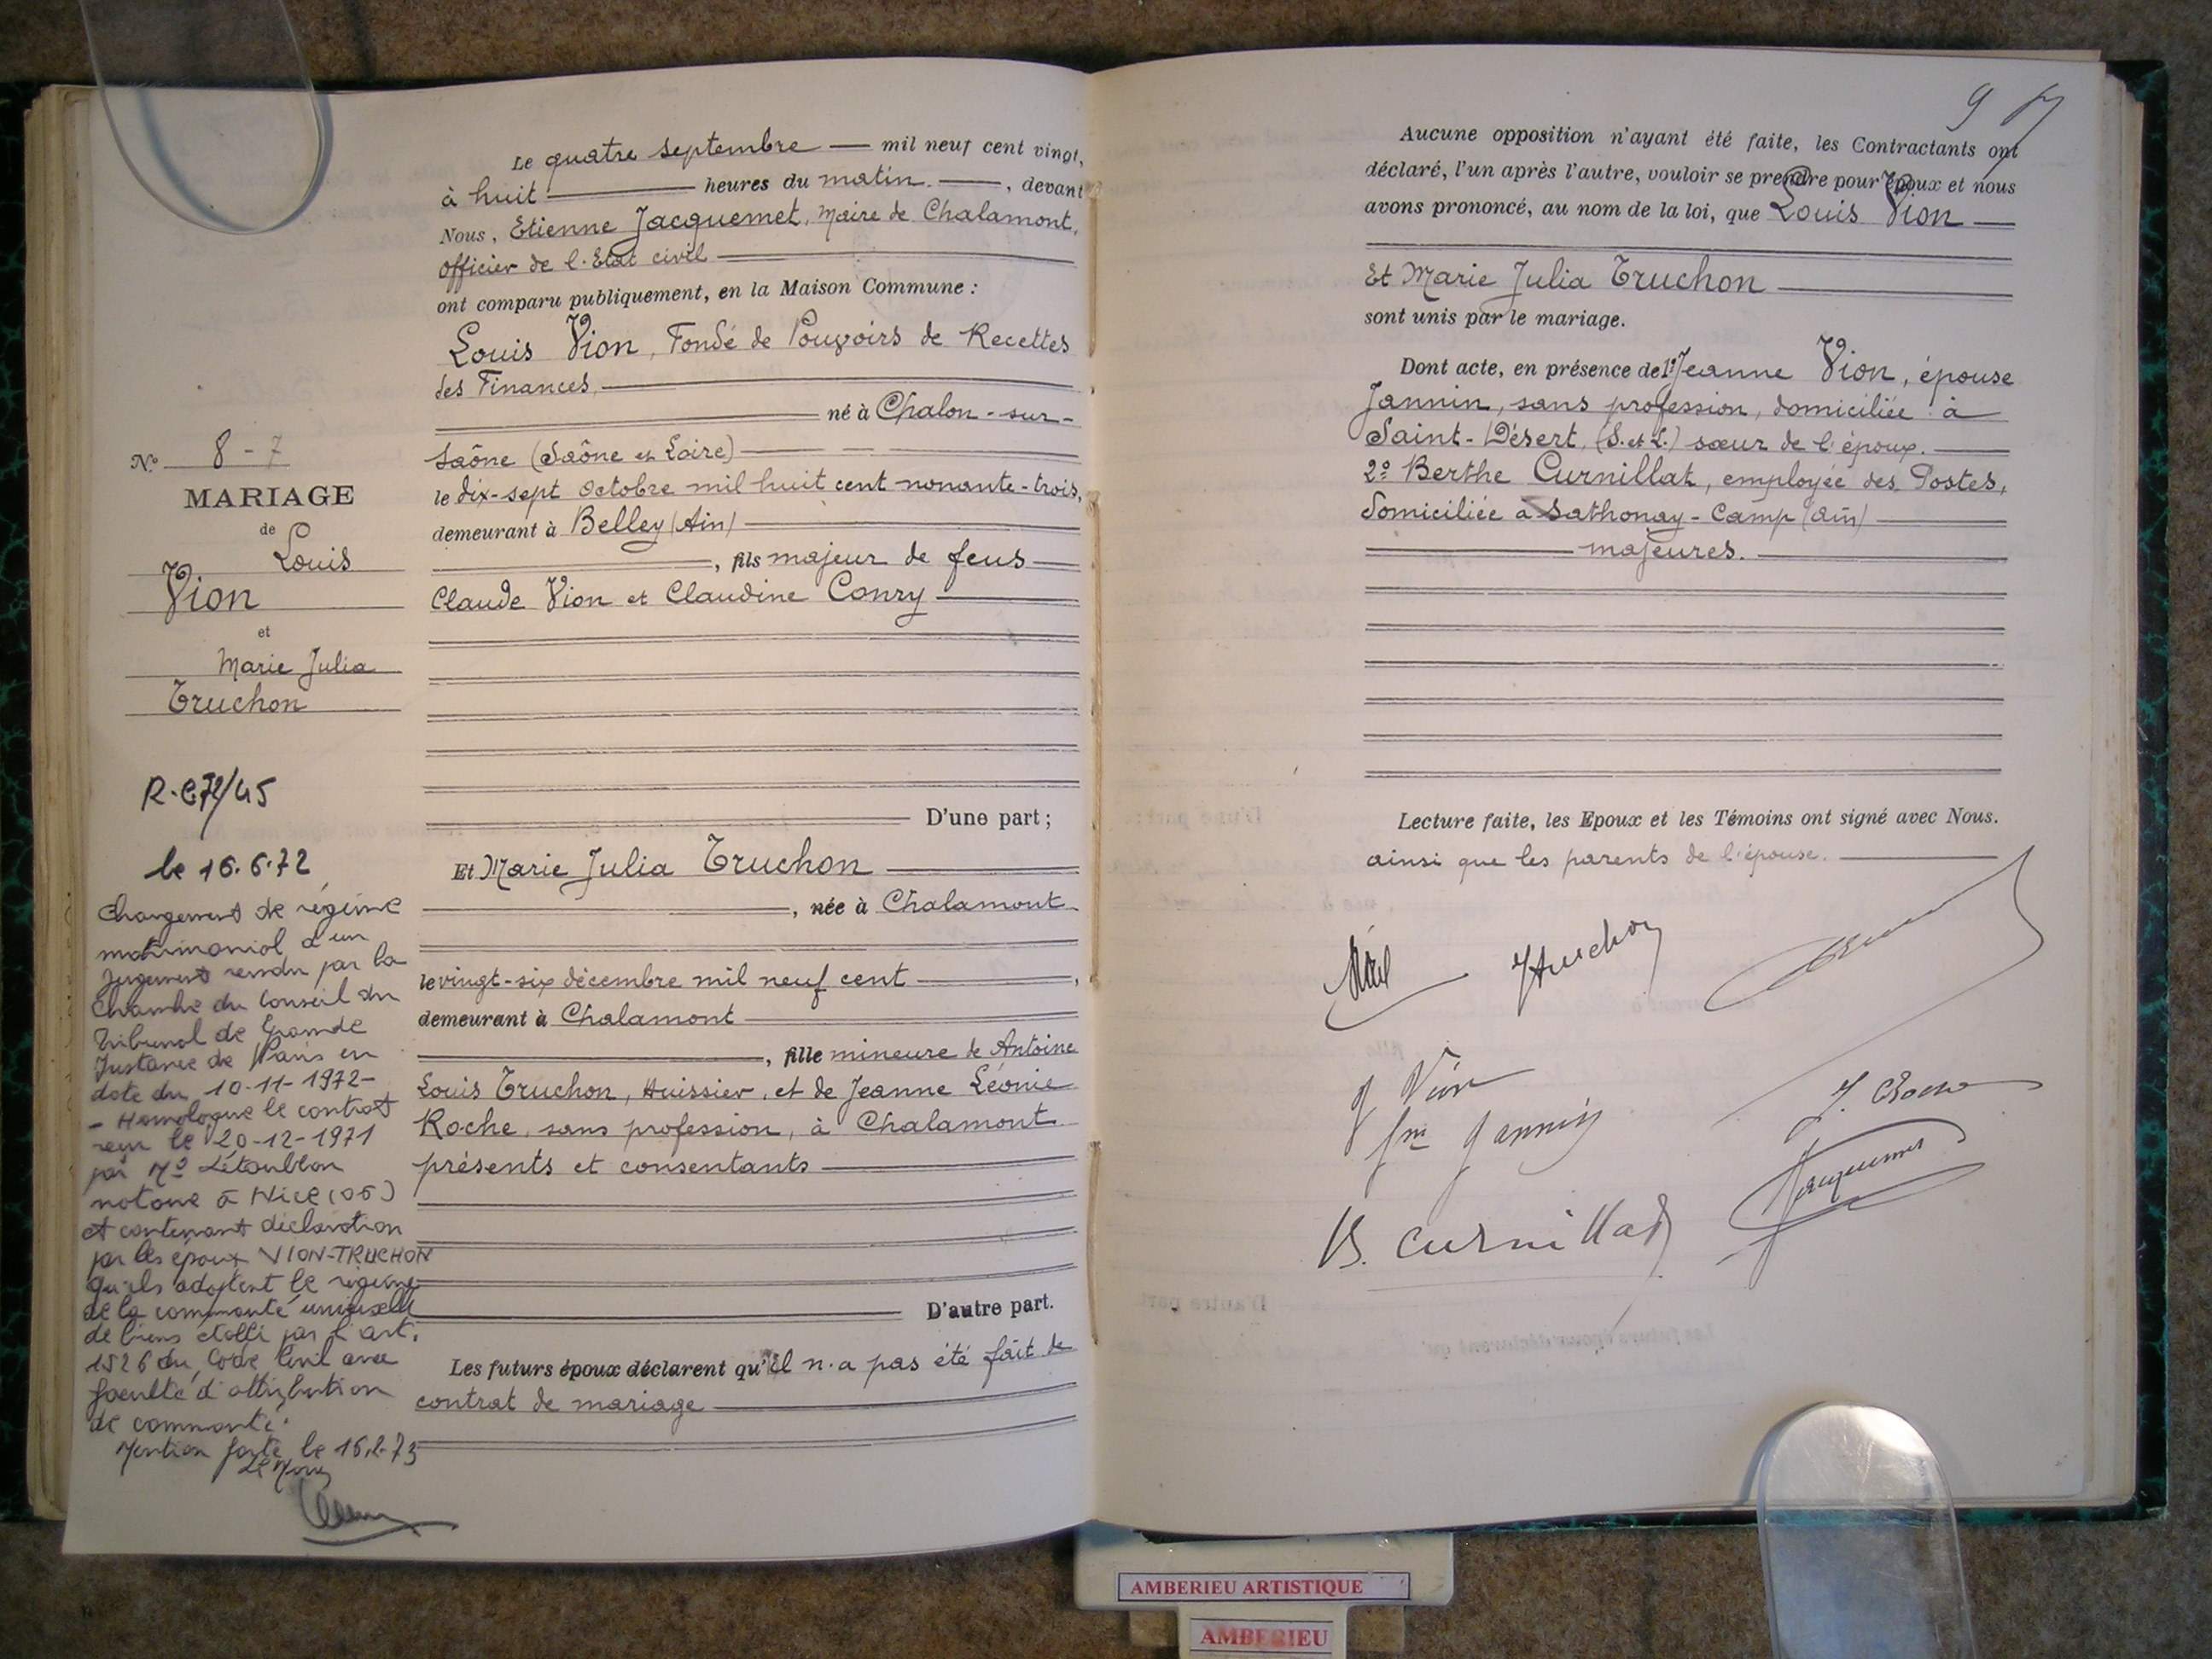 Le quatre septembre — mil neuf cent vingt,
à huit — heures du matin. —, devant
Nous, Etienne Jacquemet, Maire de Chalamont,
officier de l'Etat civil
ont comparu publiquement, en la Maison Commune :
Louis Vion, Fondé de Pouvoirs de Recettes
des Finances,
né à Chalon-sur-
Saône (Saône et Loire)
le dix-sept octobre mil huit cent nonante-trois,
demeurant à Belley (Ain)
, fils majeur de feus
Claude Vion et Claudine Conry
D'une part ;
Et Marie Julia Truchon
, née à Chalamont
le vingt-six décembre mil neuf cent —,
demeurant à Chalamont
, fille mineure de Antoine
Louis Truchon, Huissier, et de Jeanne Léonie
Roche, sans profession, à Chalamont
présents et consentants
D'autre part.
Les futurs époux déclarent qu'il n'a pas été fait de
contrat de mariage
No 8-7
MARIAGE
de Louis
Vion
et
Marie Julia
Truchon
R.C 72/45
le 16.6.72
Changement de régime
matrimonial d'un
Jugement rendu par la
Chambre du Conseil du
Tribunal de Grande
Instance de Paris en
date du 10-11-1972-
- Homologue le contrat
reçu le 20-12-1971
par Me Létoublon
notaire à Nice (06)
et contenant déclaration
par les époux VION-TRUCHON
qu'ils adoptent le régime
de la communauté universelle
de biens établi par l'art.
1526 du Code Civil avec
faculté d'attribution
de communté.
Mention faite le 15.2.73
9
Aucune opposition n'ayant été faite, les Contractants ont
déclaré, l'un après l'autre, vouloir se prendre pour époux et nous
avons prononcé, au nom de la loi, que Louis Vion
Et Marie Julia Truchon
sont unis par le mariage.
Dont acte, en présence de 1° Jeanne Vion, épouse
Jannin, sans profession, domiciliée à
Saint-Désert, (S. et L.) sœur de l'époux.
2° Berthe Curnillat, employée des Postes,
domiciliée à Sathonay-Camp (Ain)
majeures.
Lecture faite, les Epoux et les Témoins ont signé avec Nous.
ainsi que les parents de l'épouse.
JTruchon
J Vion
fme Jannin
J. Roche
Jacquemet
B. Curnillat
AMBERIEU ARTISTIQUE
AMBERIEU